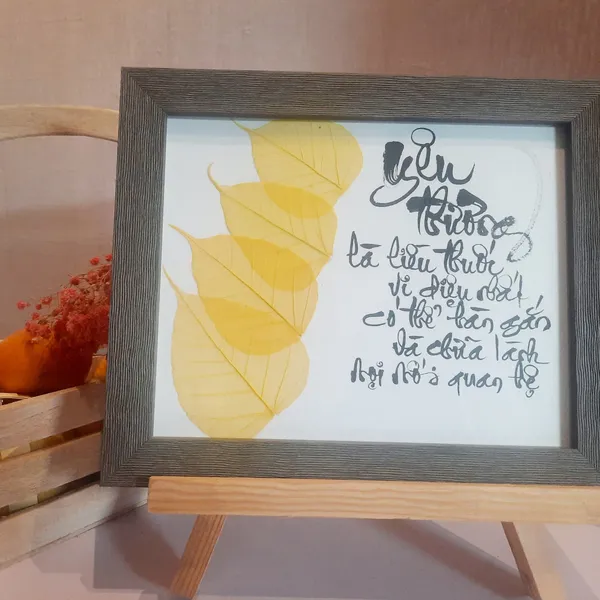 Yêu
thương
là liều thuốc
vi diệu nhất
có thể hàn gắn
và chữa lành
mọi mối quan hệ